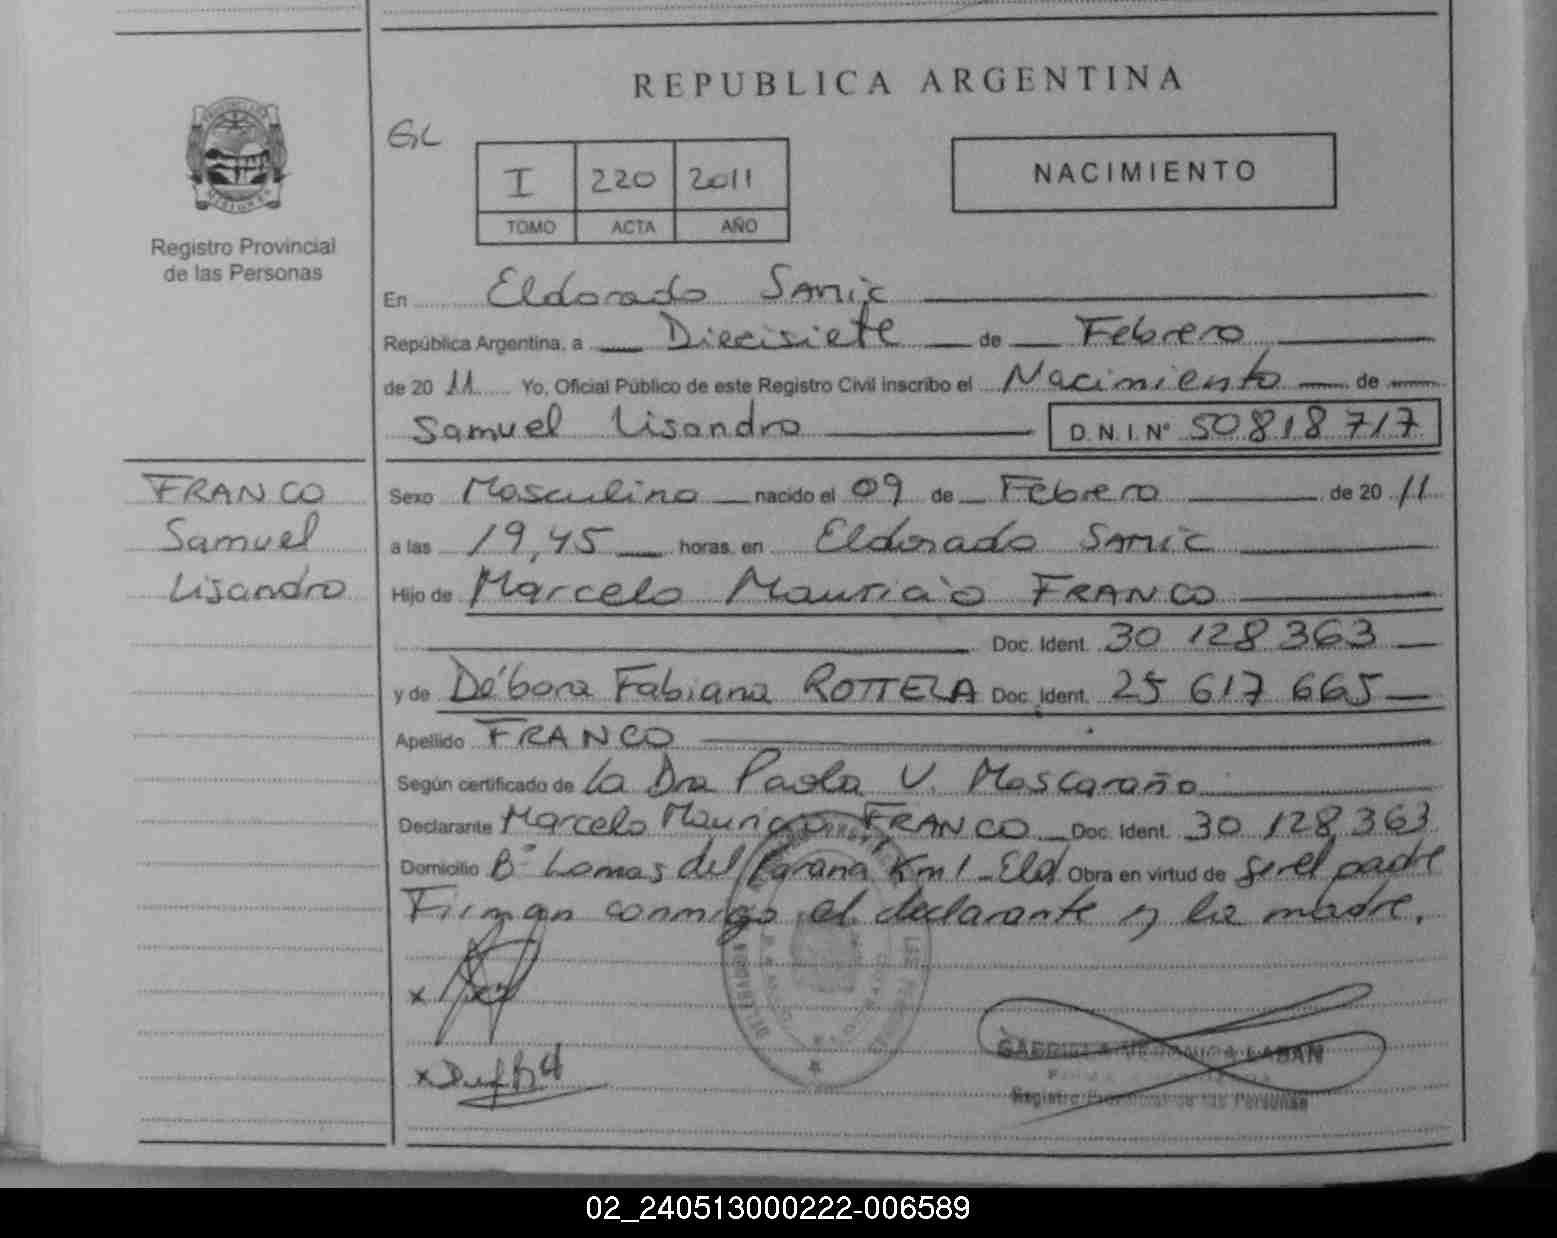 REPUBLICA ARGENTINA
GL
I 220 2011
TOMO ACTA AÑO
NACIMIENTO
Registro Provincial
de las Personas
En Eldorado SAMic
República Argentina, a Diecisiete de Febrero
de 20 11 Yo, Oficial Público de este Registro Civil inscribo el Nacimiento de
Samuel Lisandro D.N.I.Nº 50818717
FRANCO
Samuel
Lisandro
Sexo Masculino nacido el 09 de Febrero de 20 11
a las 19,45 horas. en Eldorado SAMic
Hijo de Marcelo Mauricio FRANCO
Doc. Ident. 30 128 363
y de Débora Fabiana ROTTELA Doc. Ident. 25 617 665
Apellido FRANCO
Según certificado de La Dra Paola V. Mascaraño
Declarante Marcelo Mauricio FRANCO Doc. Ident. 30 128 363
Domicilio Bº Lomas del Parana Km 1 - Eld. Obra en virtud de ser el padre
Firman conmigo el declarante y la madre.
GABRIELA VERONICA LABAN
Registro Provincial de las Personas
02_240513000222-006589